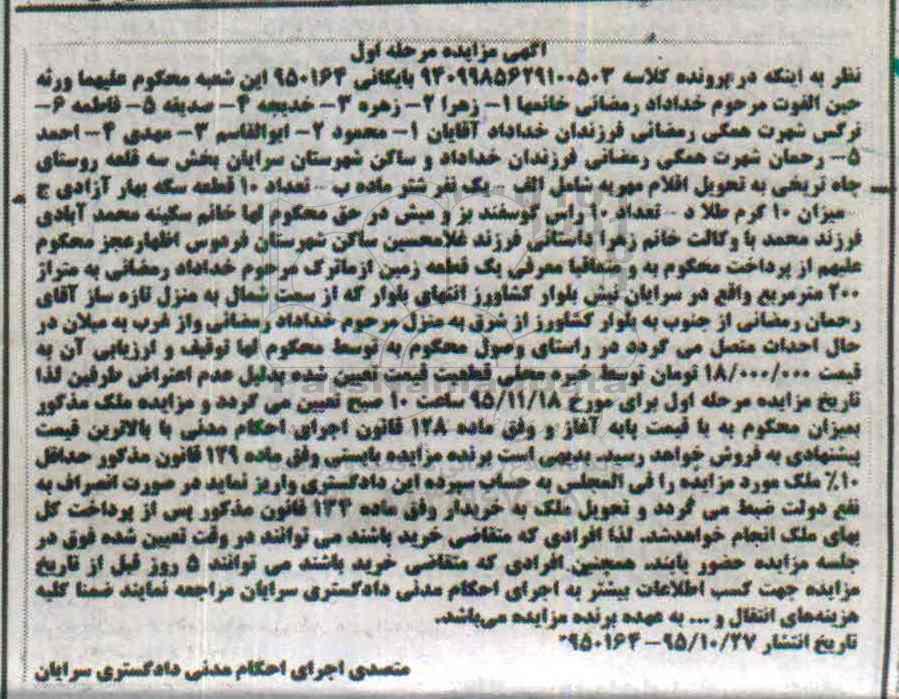 آگهی مزایده مرحله اول
نظر به اینکه در پرونده کلاسه ۹۴۰۹۹۸۵۶۲۹۱۰۰۵۰۳ بایگانی ۹۵۰۱۶۴ این شعبه محکوم علیهما ورثه
حین الفوت مرحوم خداداد رمضانی خانمها ۱- زهرا ۲- زهره ۳- خدیجه ۴- صدیقه ۵- فاطمه ۶-
نرگس شهرت همگی رمضانی فرزندان خداداد آقایان ۱- محمود ۲- ابوالقاسم ۳- مهدی ۴- احمد
۵- رحمان شهرت همگی رمضانی فرزندان خداداد و ساکن شهرستان سرایان بخش سه قلعه روستای
چاه تریخی به تحویل اقلام مهریه شامل الف - یک نفر شتر ماده ب - تعداد ۱۰ قطعه سکه بهار آزادی ج
- میزان ۱۰ گرم طلا د - تعداد ۱۰ راس گوسفند بز و میش در حق محکوم لها خانم سکینه محمد آبادی
فرزند محمد با وکالت خانم زهرا داستانی فرزند غلامحسین ساکن شهرستان فردوس اظهارعجز محکوم
علیهم از پرداخت محکوم به و متعاقبا معرفی یک قطعه زمین ازماترک مرحوم خداداد رمضانی به متراژ
۲۰۰ مترمربع واقع در سرایان نبش بلوار کشاورز انتهای بلوار که از سمت شمال به منزل تازه ساز آقای
رحمان رمضانی از جنوب به بلوار کشاورز از شرق به منزل مرحوم خداداد رمضانی واز غرب به میلان در
حال احداث متصل می گردد در راستای وصول محکوم به توسط محکوم لها توقیف و ارزیابی آن به
قیمت ۱۸/۰۰۰/۰۰۰ تومان توسط خبره محلی قطعیت قیمت تعیین شده بدلیل عدم اعتراض طرفین لذا
تاریخ مزایده مرحله اول برای مورخ ۹۵/۱۱/۱۸ ساعت ۱۰ صبح تعیین می گردد و مزایده ملک مذکور
بمیزان محکوم به با قیمت پایه آغاز و وفق ماده ۱۲۸ قانون اجرای احکام مدنی با بالاترین قیمت
پیشنهادی به فروش خواهد رسید. بدیهی است برنده مزایده بایستی وفق ماده ۱۲۹ قانون مذکور حداقل
۱۰٪ ملک مورد مزایده را فی المجلس به حساب سپرده این دادگستری واریز نماید در صورت انصراف به
نفع دولت ضبط می گردد و تحویل ملک به خریدار وفق ماده ۱۳۳ قانون مذکور پس از پرداخت کل
بهای ملک انجام خواهدشد. لذا افرادی که متقاضی خرید باشند می توانند در وقت تعیین شده فوق در
جلسه مزایده حضور یابند. همچنین افرادی که متقاضی خرید باشند می توانند ۵ روز قبل از تاریخ
مزایده جهت کسب اطلاعات بیشتر به اجرای احکام مدنی دادگستری سرایان مراجعه نمایند ضمنا کلیه
هزینه‌های انتقال و ... به عهده برنده مزایده می‌باشد.
تاریخ انتشار ۹۵/۱۰/۲۷-۹۵۰۱۶۴
متصدی اجرای احکام مدنی دادگستری سرایان